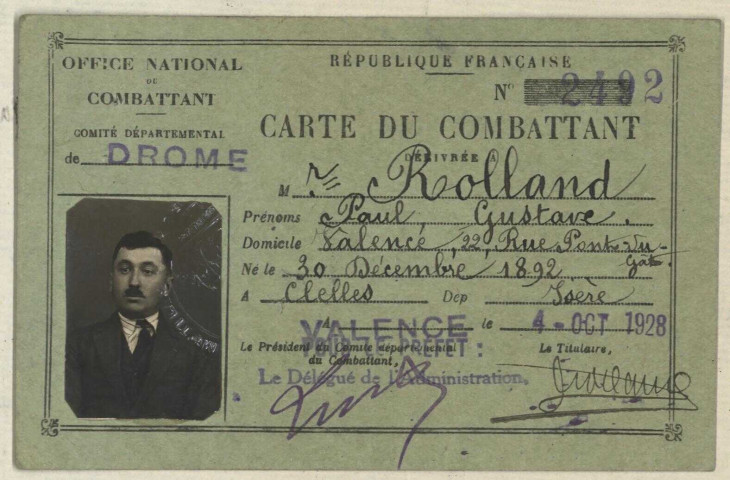 OFFICE NATIONAL
DU
COMBATTANT
COMITÉ DÉPARTEMENTAL
de DROME
RÉPUBLIQUE FRANÇAISE
N° 2492
CARTE DU COMBATTANT
DÉLIVRÉE A
M Rolland
Prénoms Paul, Gustave.
Domicile Valence, 22, Rue Pont-du-
Gât.
Né le 30 Décembre 1892
A Clelles Dép Isère
A VALENCE le 4 - OCT 1928
POUR LE PRÉFET :
Le Président du Comité départemental
du Combattant,
Le Titulaire,
Le Délégué de l'Administration,